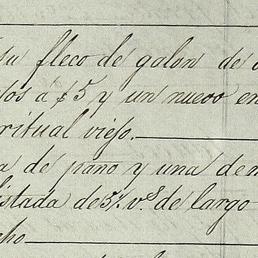 su fleco de galon de
dos á $5 y un nuevo en
ritual viejo.
a de paño y una de
listada de 5½ v.s de largo
cho